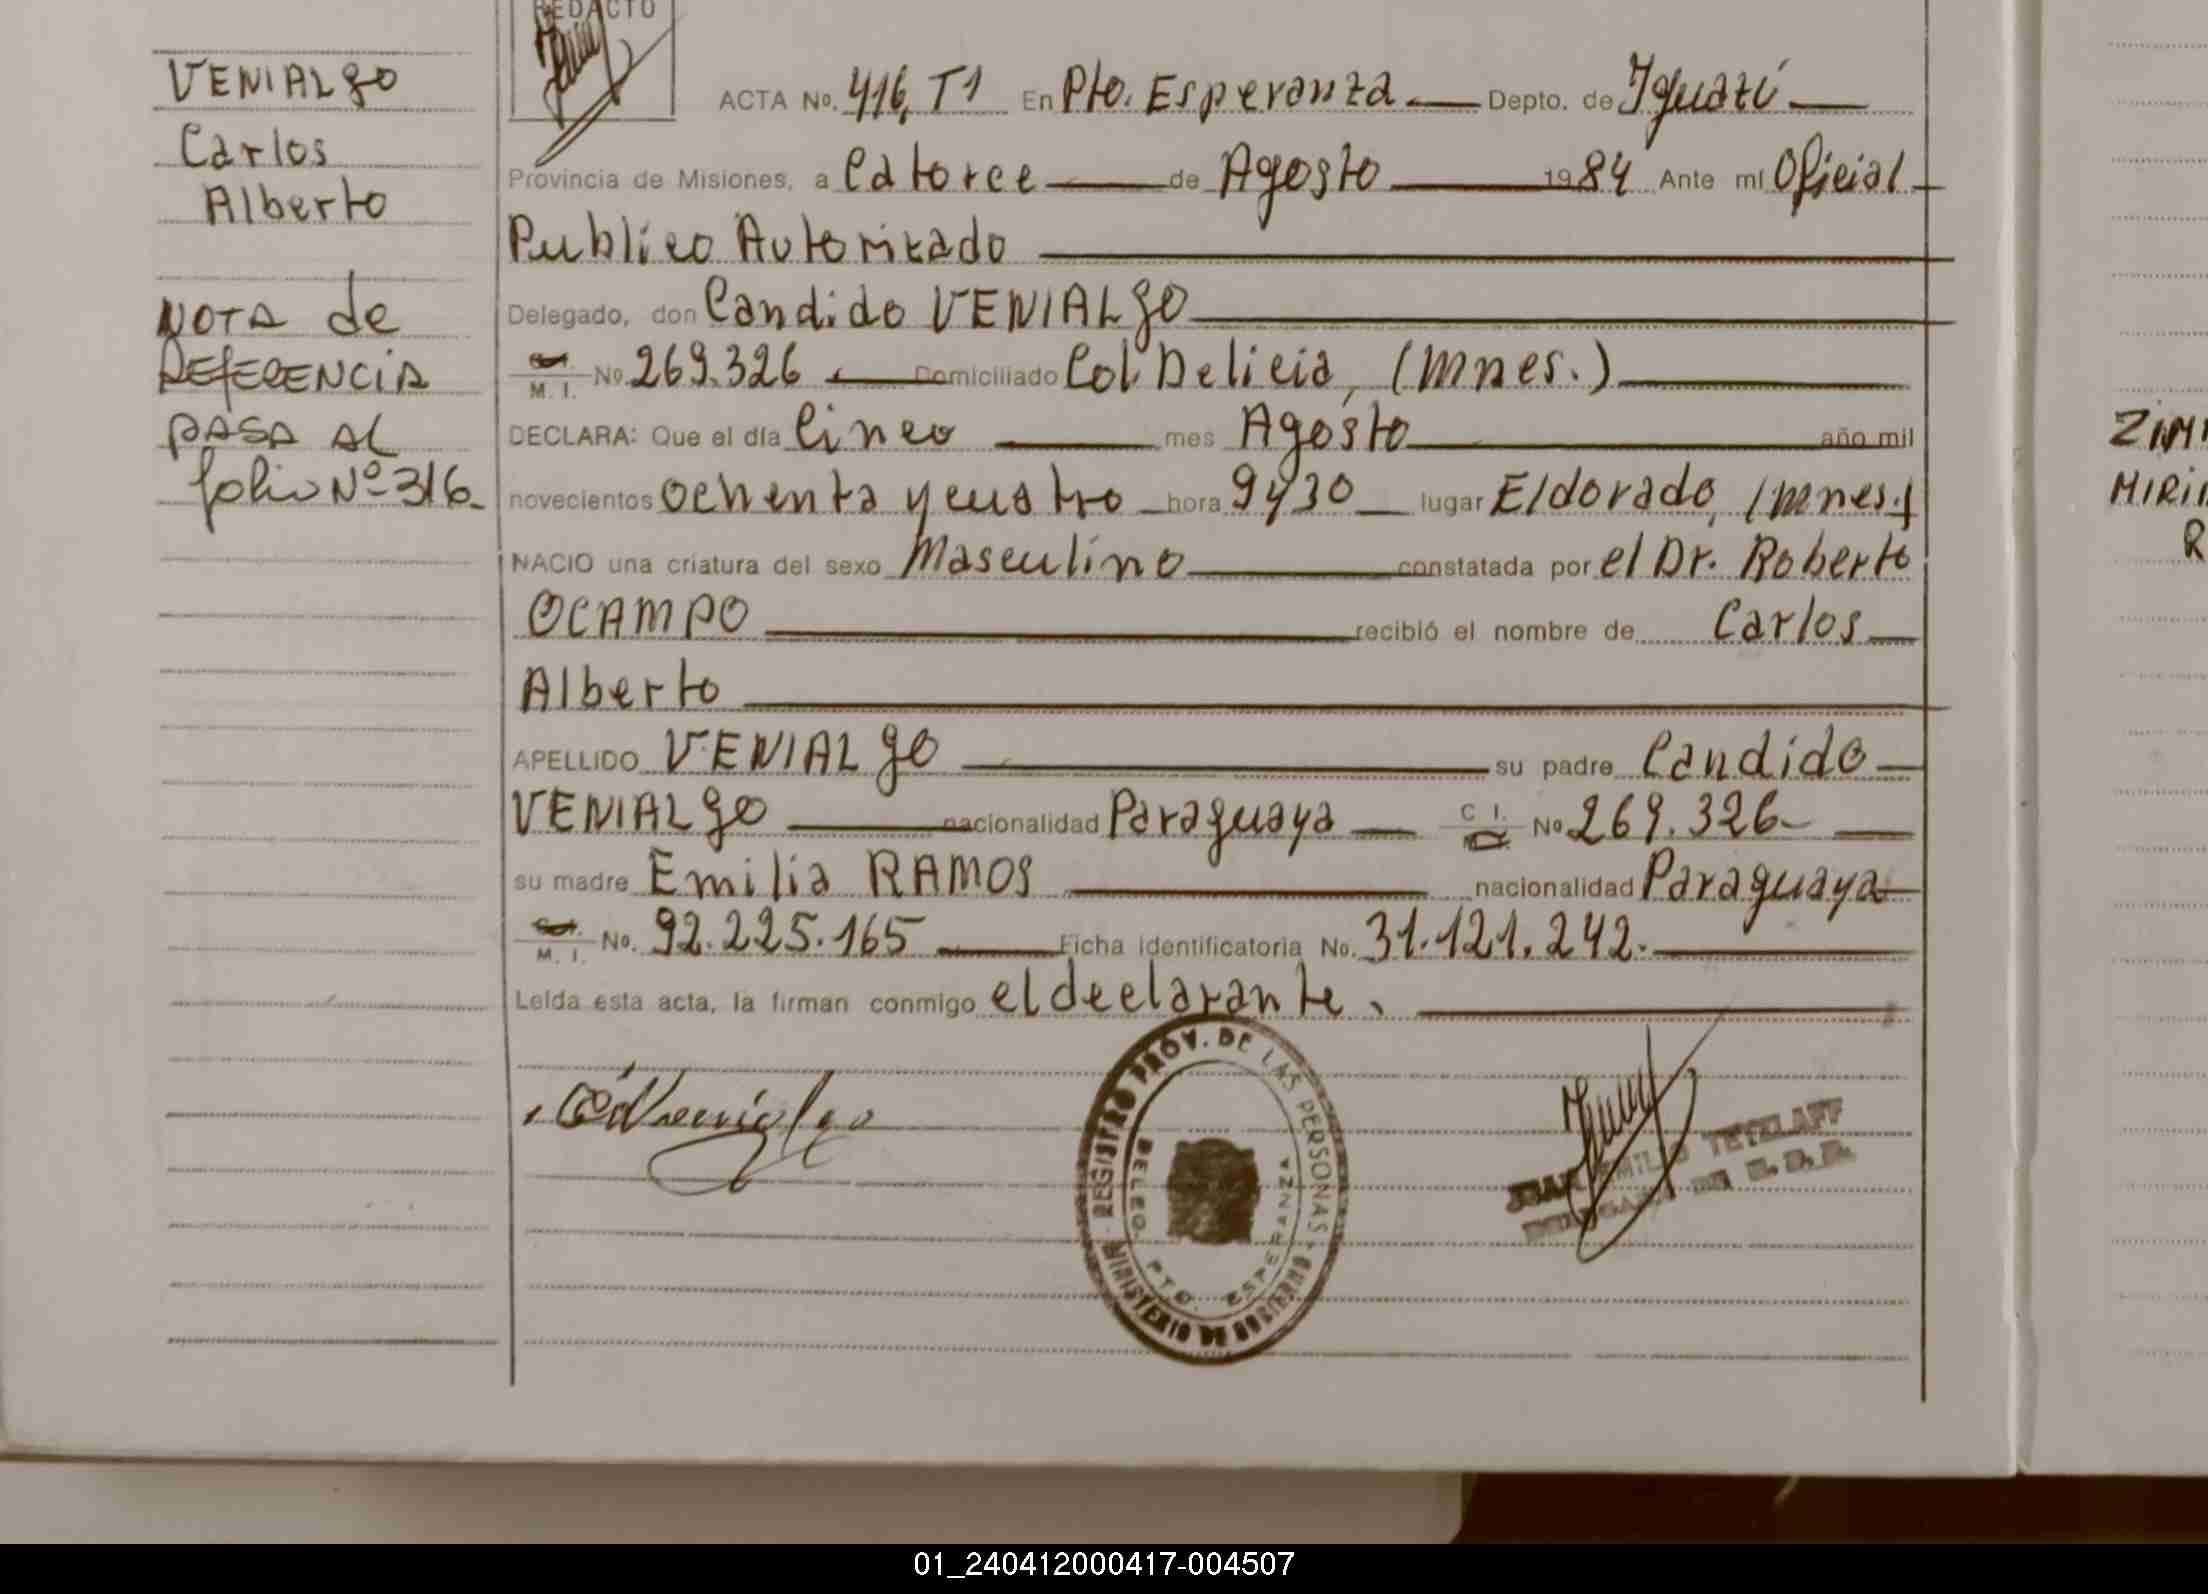 VENIALgo
Carlos
Alberto
NOTA de
REFERENCIA
PASA AL
folio Nº 316_
REDACTO
ACTA No. 416, T1 En Pto. Esperanza Depto. de Iguazú
Provincia de Misiones, a Catorce de Agosto 1984 Ante mi Oficial
Publico Autorizado
Delegado, don Candido VENIALgo
M. I. No. 269.326 Domiciliado Col Delicia, (Mnes.)
DECLARA: Que el día Cinco mes Agosto año mil
novecientos ochenta y cuatro hora 9y30 lugar Eldorado, (Mnes.)
NACIO una criatura del sexo Masculino constatada por el Dr. Roberto
OCAMPO recibió el nombre de Carlos
Alberto
APELLIDO VENIALgo su padre Candido
VENIALgo nacionalidad Paraguaya C I. No 269.326-
su madre Emilia RAMOS nacionalidad Paraguaya
M. I. No. 92.225.165 Ficha identificatoria No. 31.121.242.
Leída esta acta, la firman conmigo el declarante.
REGISTRO PROV. DE LAS PERSONAS
MINISTERIO DE GOBIERNO
DELEG. PTO. ESPERANZA
EMILIO TETZLAFF
ZIM
MIRI
R
01_240412000417-004507